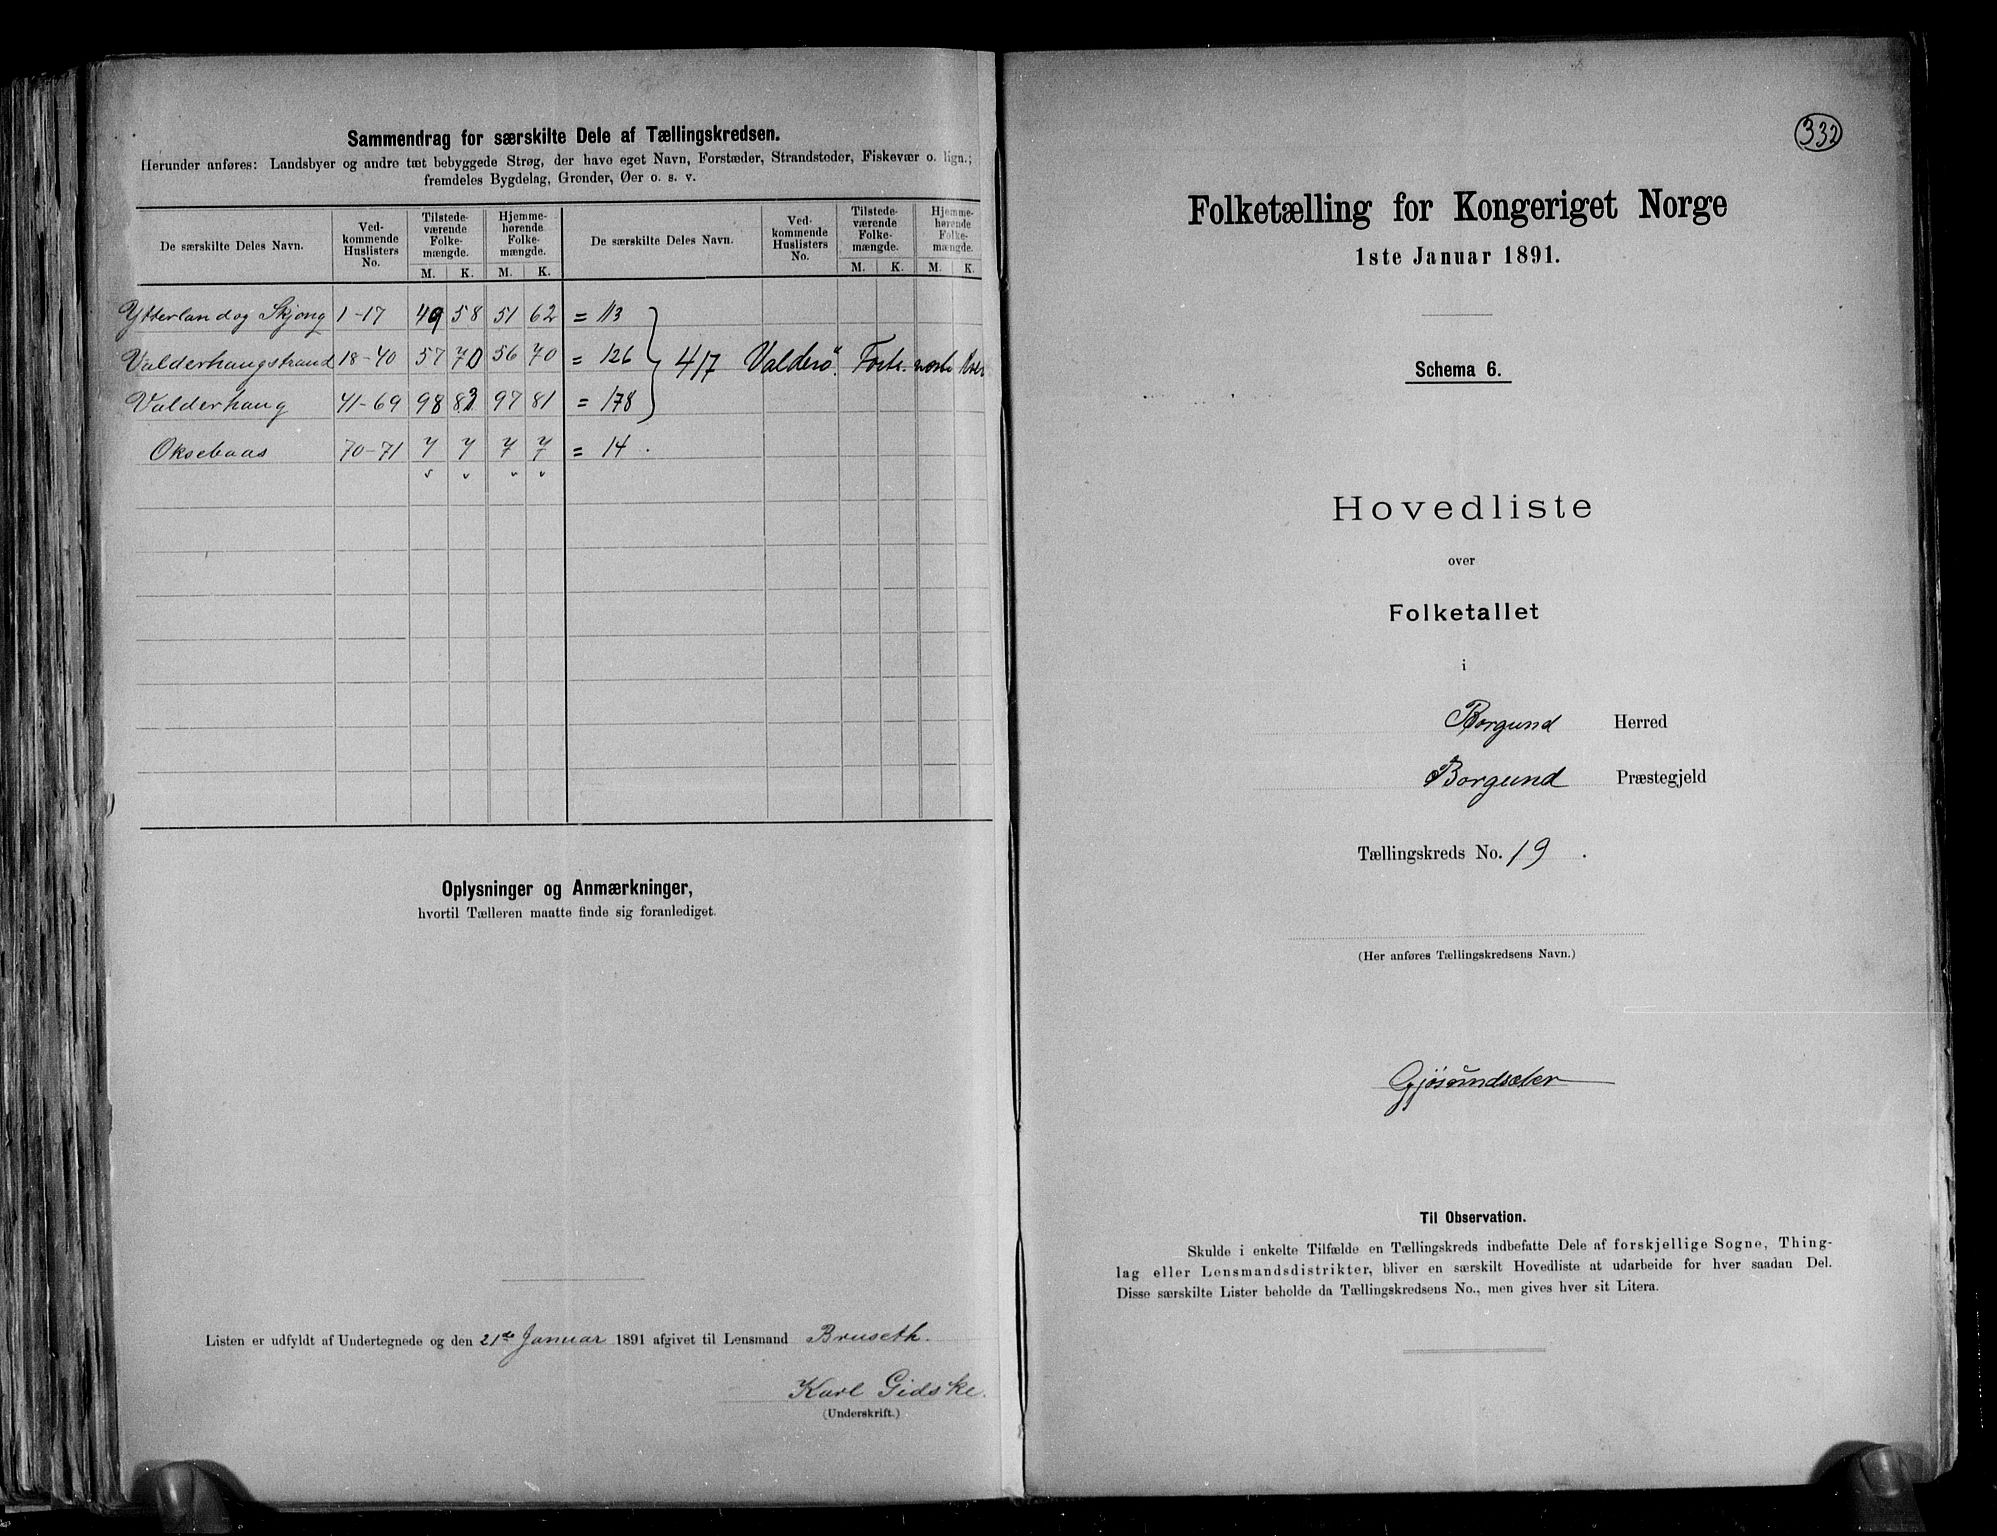 Sammendrag for særskilte Dele af Tællingskredsen.
Herunder anføres: Landsbyer og andre tæt bebyggede Strøg, der have eget Navn, Forstæder, Strandsteder, Fiskevær o. lign.;
fremdeles Bygdelag, Grender, Øer o. s. v.
De særskilte Deles Navn. Ved-kommende Huslisters No. Tilstede-værende Folke-mængde. Hjemme-hørende Folke-mængde. De særskilte Deles Navn. Ved-kommende Huslisters No. Tilstede-værende Folke-mængde. Hjemme-hørende Folke-mængde.
M. K. M. K. M. K. M. K.
Ytterland og Skjong 1-17 49 58 51 62 = 113
Valderhaugstrand 18-40 57 70 56 70 = 126 417 Valderö.
Valderhaug 41-69 98 83 97 81 = 178
Oksebaas 70-71 7 7 7 7 = 14.
Oplysninger og Anmærkninger,
hvortil Tælleren maatte finde sig foranlediget.
Listen er udfyldt af Undertegnede og den 21de Januar 1891 afgivet til Lensmand Bruseth.
Karl Gidske.
(Underskrift.)
332
Folketælling for Kongeriget Norge
1ste Januar 1891.
Schema 6.
Hovedliste
over
Folketallet
i
Borgund Herred
Borgund Præstegjeld
Tællingskreds No. 19.
(Her anføres Tællingskredsens Navn.)
Gjösundsæter
Til Observation.
Skulde i enkelte Tilfælde en Tællingskreds indbefatte Dele af forskjellige Sogne, Thing-
lag eller Lensmandsdistrikter, bliver en særskilt Hovedliste at udarbeide for hver saadan Del.
Disse særskilte Lister beholde da Tællingskredsens No., men gives hver sit Litera.